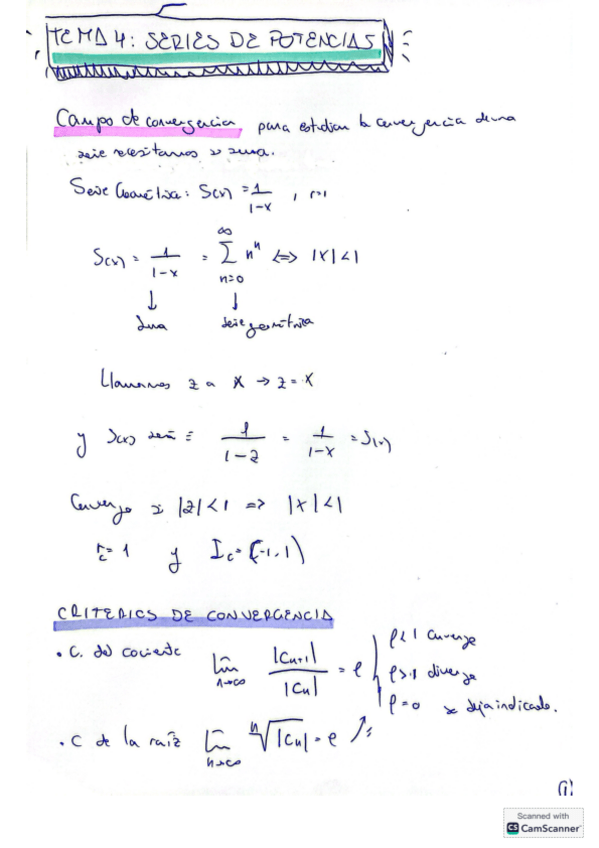 TEMA 4: SERIES DE POTENCIAS
Campo de convergencia, para estudiar la convergencia de una
serie necesitamos su suma.
Serie Geométrica: S(x) = 1/(1-x) , r=1
S(x) = 1/(1-x) = ∑_{n=0}^{∞} n^n ⇔ |x|<1
↓ ↓
suma serie geométrica
Llamamos z a x → z = x
y S(x) será = 1/(1-z) = 1/(1-x) = S(x)
Converge si |z|<1 ⇒ |x|<1
r_c = 1 y I_c = (-1,1)
CRITERIOS DE CONVERGENCIA
• C. del cociente lim_{n→∞} |C_{n+1}|/|C_n| = ρ
ρ<1 converge
ρ>1 diverge
ρ=0 se deja indicado.
• C de la raíz lim_{n→∞} ⁿ√|C_n| = ρ
(1)
Scanned with
CS CamScanner